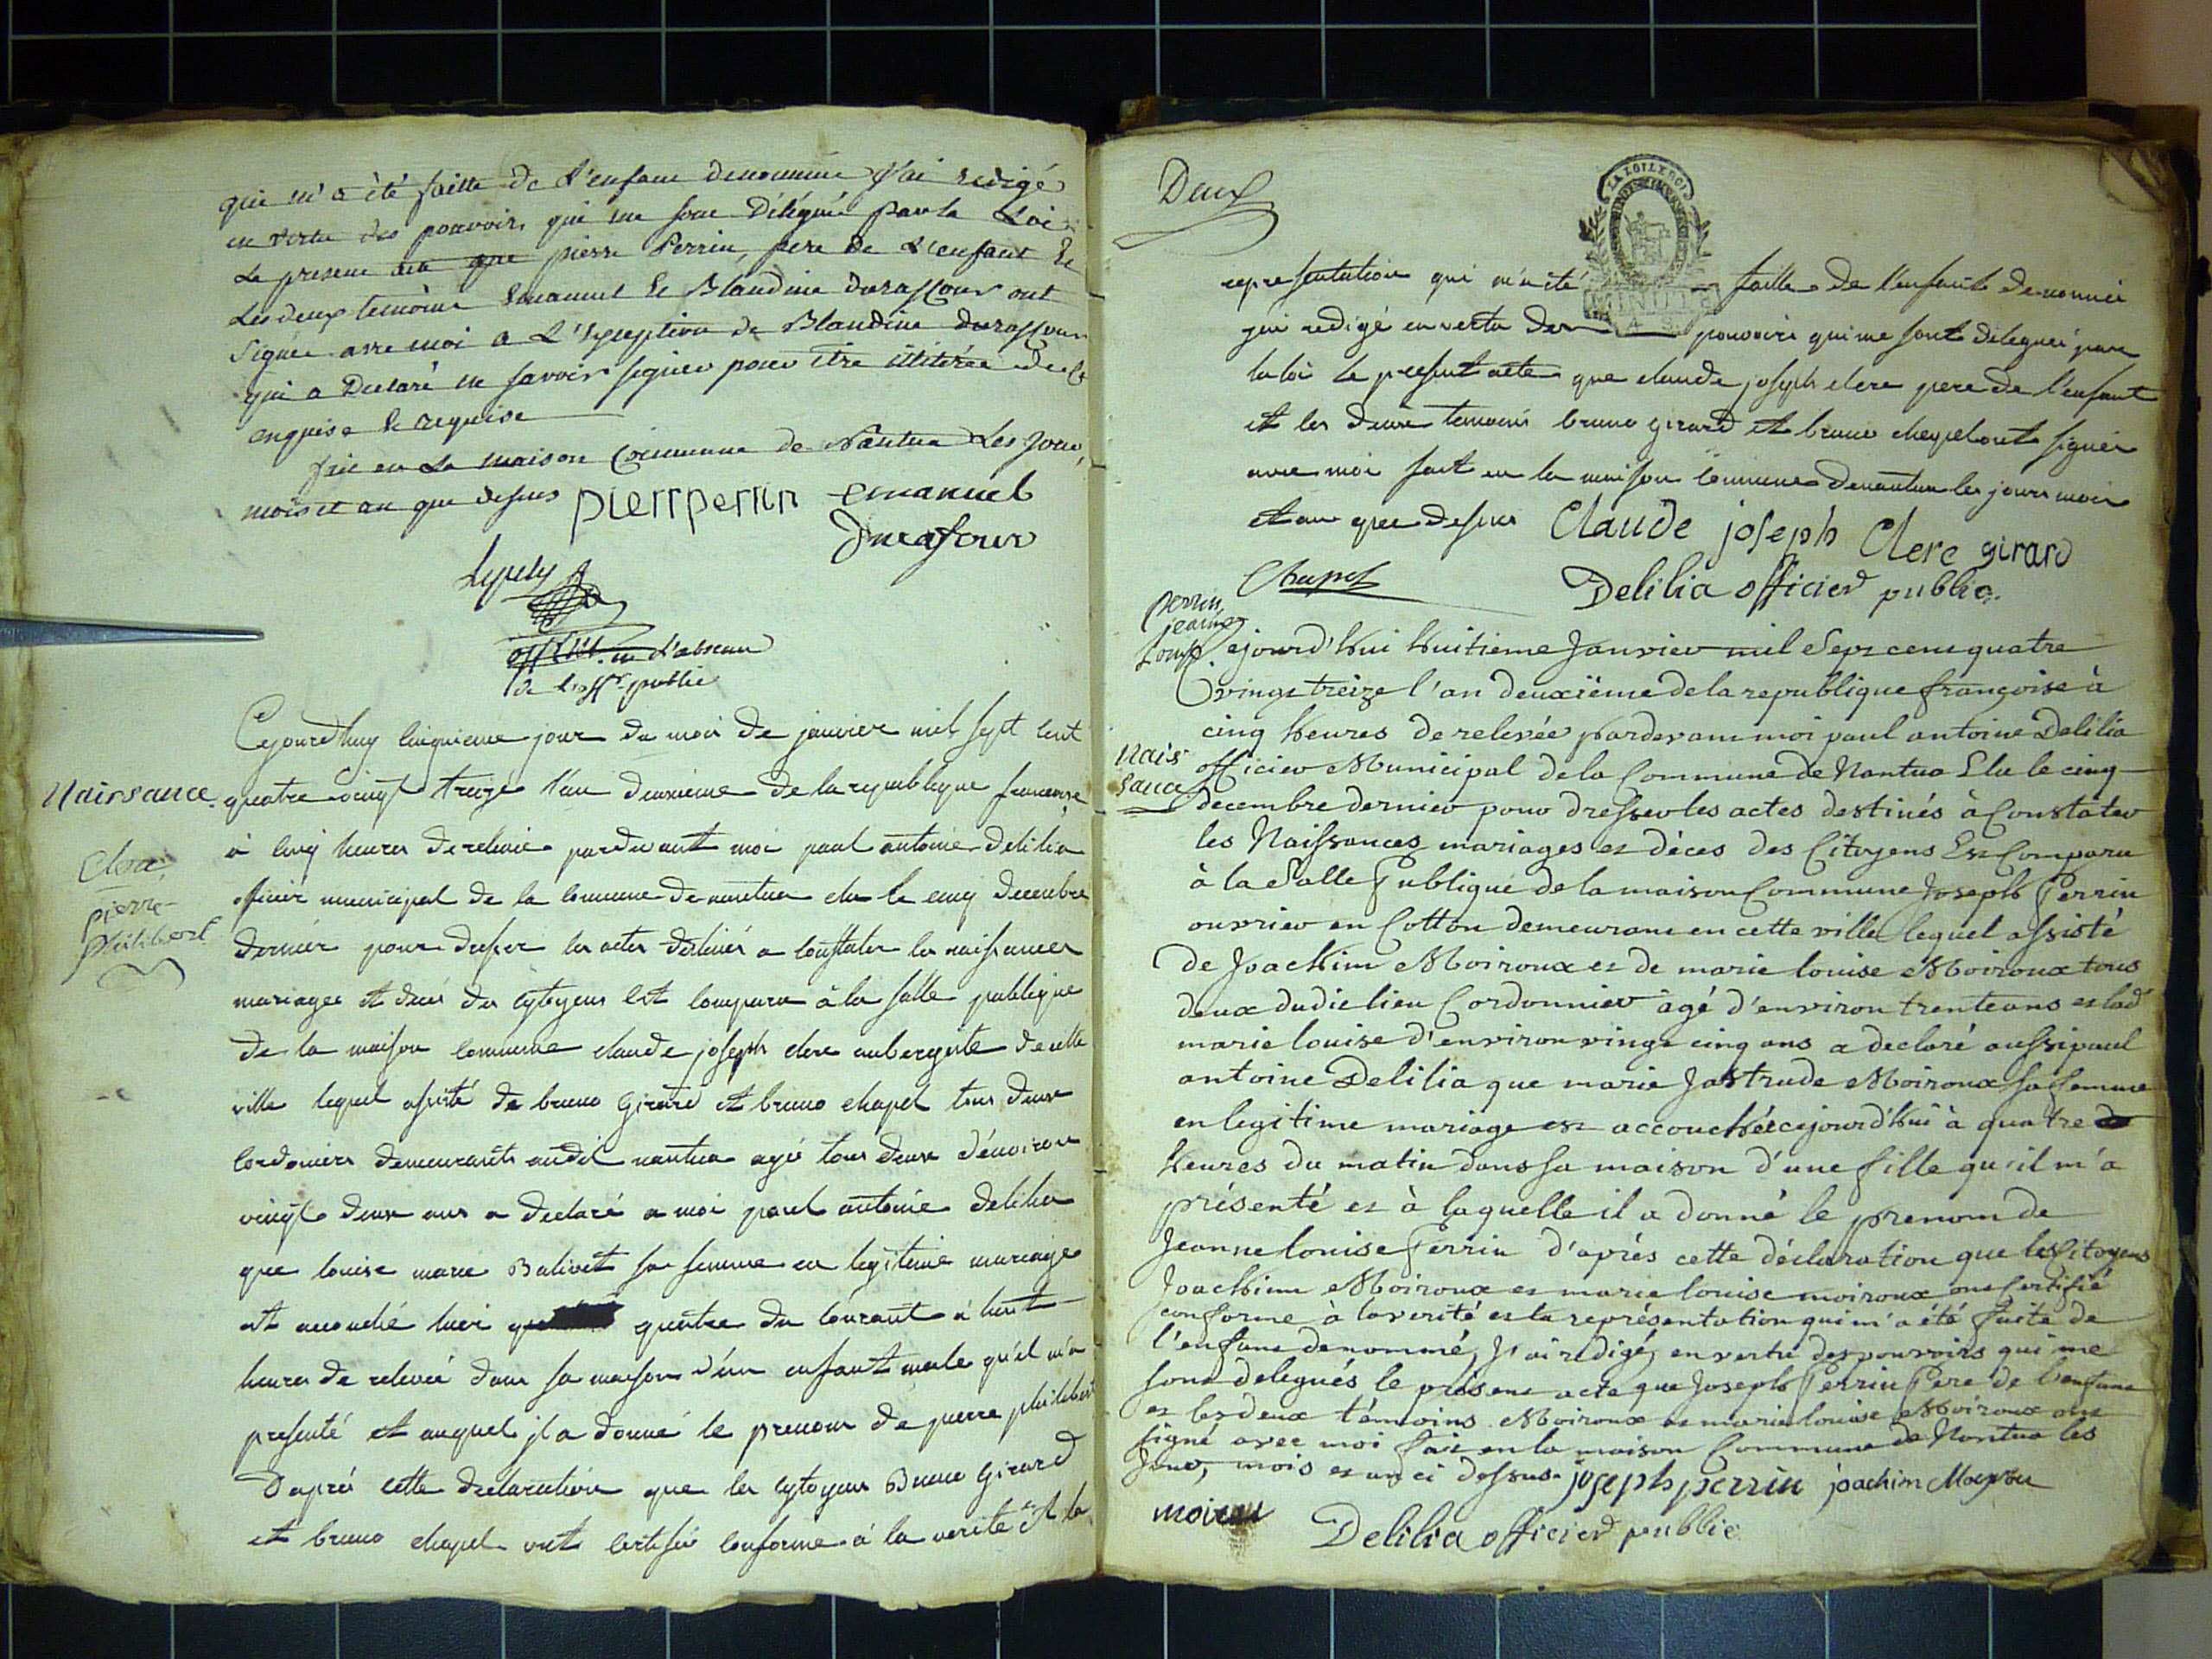 qui m'a été faitte de l'enfant denommé j'ai redigé
en vertu des pouvoirs qui me sont Délégués par la Loi
Le present acte que pierre Perrin, pere de L'enfant Et
Les deux temoins Emanuel Et Blandine durafour ont
signés avec moi a L'Exception de Blandine durafour
qui a Declaré ne savoir signer pour être illitérée de ce
enquise Et requise
fait en La maison Commune de Nantua Les jour,
mois et an que dessus pierrperrin emanuel
Durafour
off. en l'absence
de l'offr. public
Naissance
Clerc
pierre
philibert
Cejourdhuy cinquieme jour du mois de janvier mil sept cent
quatre vingt treize l'an deuxieme de la republique francoise
à cinq heures de relevée pardevant moi paul antoine delilia
officier municipal de la commune de nantua elu le cinq decembre
dernier pour dresser les actes destinés a constater les naissances
mariages et deces des cytoyens est comparu à la salle publique
de la maison commune claude joseph clerc aubergiste de cette
ville lequel assisté de bruno Girard et bruno chapel tous deux
cordoniers demeurants audit nantua agés tous deux d'environ
vingt deux ans a declaré a moi paul antoine delilia
que louise marie Balivet sa femme en legitime mariage
est accouché hier quatre du courant à huit
heures de relevée dans sa maison d'un enfant male qu'il m'a
presenté et auquel il a donné le prenom de pierre philibert
D'aprés cette declaration que les cytoyens Bruno Girard
et bruno chapel ont certifié conforme à la verité et la
Deux
LA LOI LE ROI
MINUTE
representation qui m'a été faitte de l'enfant denommé
j'ai redigé en vertu des pouvoirs qui me sont delegués par
la loi le present acte que claude joseph clerc pere de l'enfant
et les deux temoins bruno girard et bruno chapel ont signés
avec moi fait en la maison commune de nantua les jours mois
et an que dessus Claude joseph Clerc girard
Chapel Delilia officier public.
perrin
jeanne
Louise
Nais
sance
Cejourd'hui huitieme Janvier mil Sept cent quatre
vingt treize l'an deuxiëme de la republique françoise à
cinq heures de relevée pardevant moi paul antoine Delilia
officier Municipal de la Commune de Nantua Elu le cinq
decembre dernier pour dresser les actes destinés à Constater
les Naissances mariages et déces des Citoyens Est Comparu
à la Salle Publique de la maison Commune Joseph Perrin
ouvrier en Cotton demeurant en cette ville lequel assisté
de Joachim Moiroux et de marie louise Moiroux tous
deux dudit lieu Cordonnier agé d'environ trente ans et lad
marie louise d'environ vingt cinq ans a declaré aussi paul
antoine Delilia que marie Jastrude Moiroux sa femme
en legitime mariage est accouchée cejourd'hui à quatre
heures du matin dans sa maison d'une fille qu'il m'a
présenté et à laquelle il a donné le prenom de
Jeanne louise Perrin d'aprés cette déclaration que les Citoyens
Joachim Moiroux et marie louise moiroux ont Certifié
conforme à la verité et la représentation qui m'a été faite de
l'enfant denommé, J'ai redigé, en vertu des pouvoirs qui me
sont delegués le présent acte que Joseph Perrin Pere de l'enfant
et les deux témoins Moiroux et marie louise Moiroux ont
signé avec moi fait en la maison Commune de Nantua les
Jour, mois et an ci dessus. joseph perrin joachim
Delilia officier public